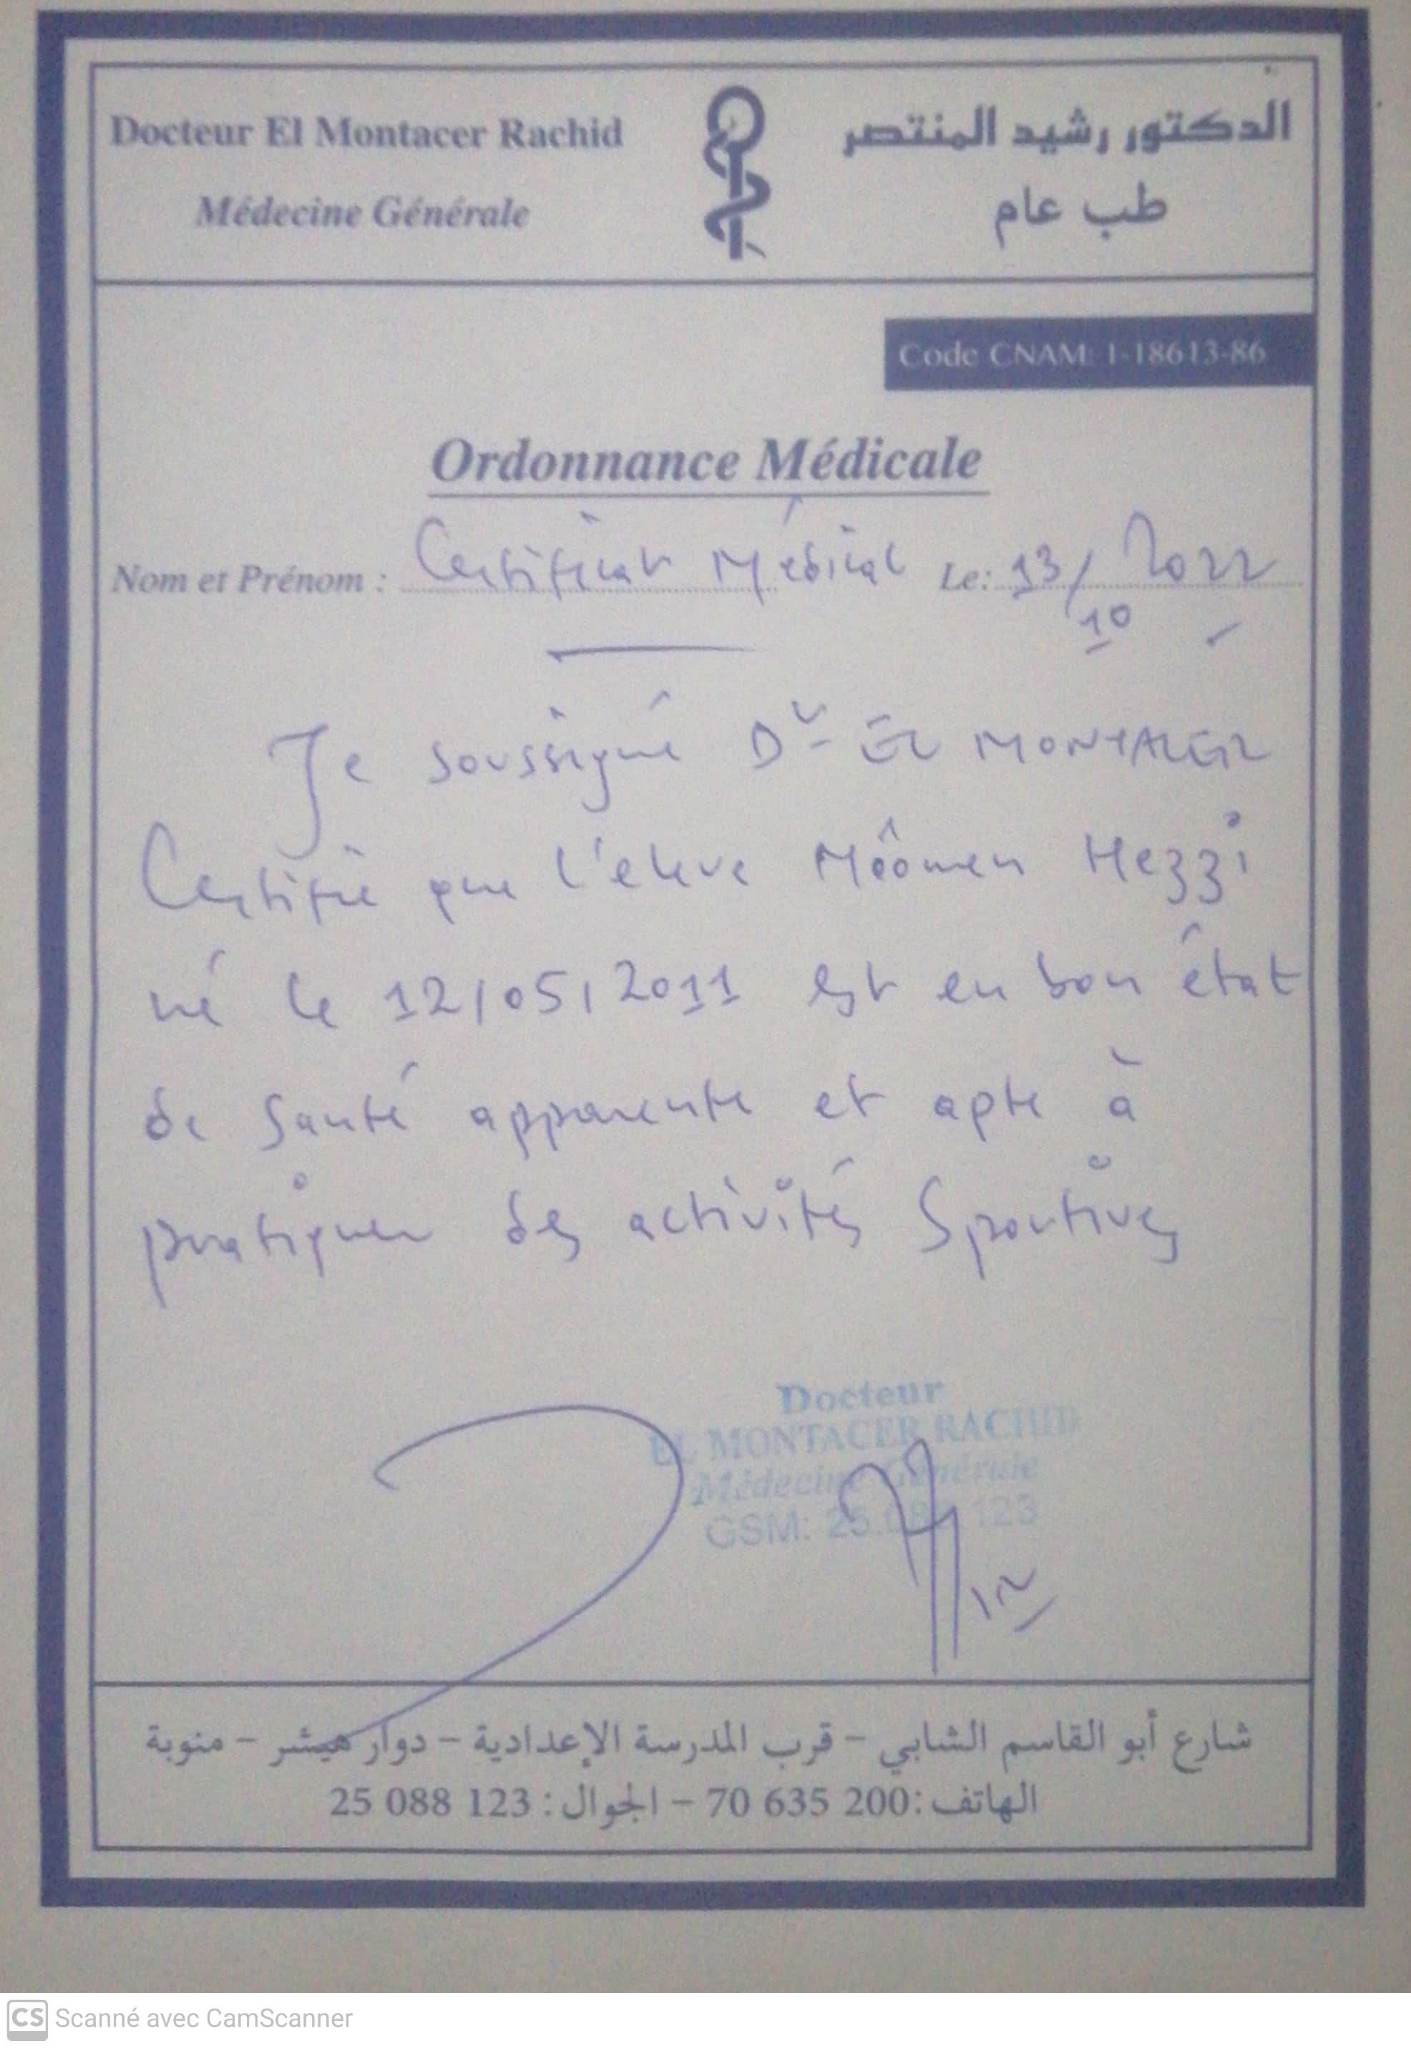 Docteur El Montacer Rachid
Médecine Générale
الدكتور رشيد المنتصر
طب عام
Code CNAM: 1-18613-86
Ordonnance Médicale
Nom et Prénom : Certificat Médical Le: 13/10/2022
Je soussigné Dr EL MONTACER
Certifie que l'eleve Môomen Hezzi
né le 12/05/2011 est en bon état
de Santé apparente et apte à
pratiquer des activités Sportives
Docteur
EL MONTACER RACHID
Médecine Générale
GSM: 25.088 123
شارع أبو القاسم الشابي - قرب المدرسة الإعدادية - دوار هيشر - منوبة
الهاتف: 200 635 70 - الجوال: 123 088 25
CS Scanné avec CamScanner